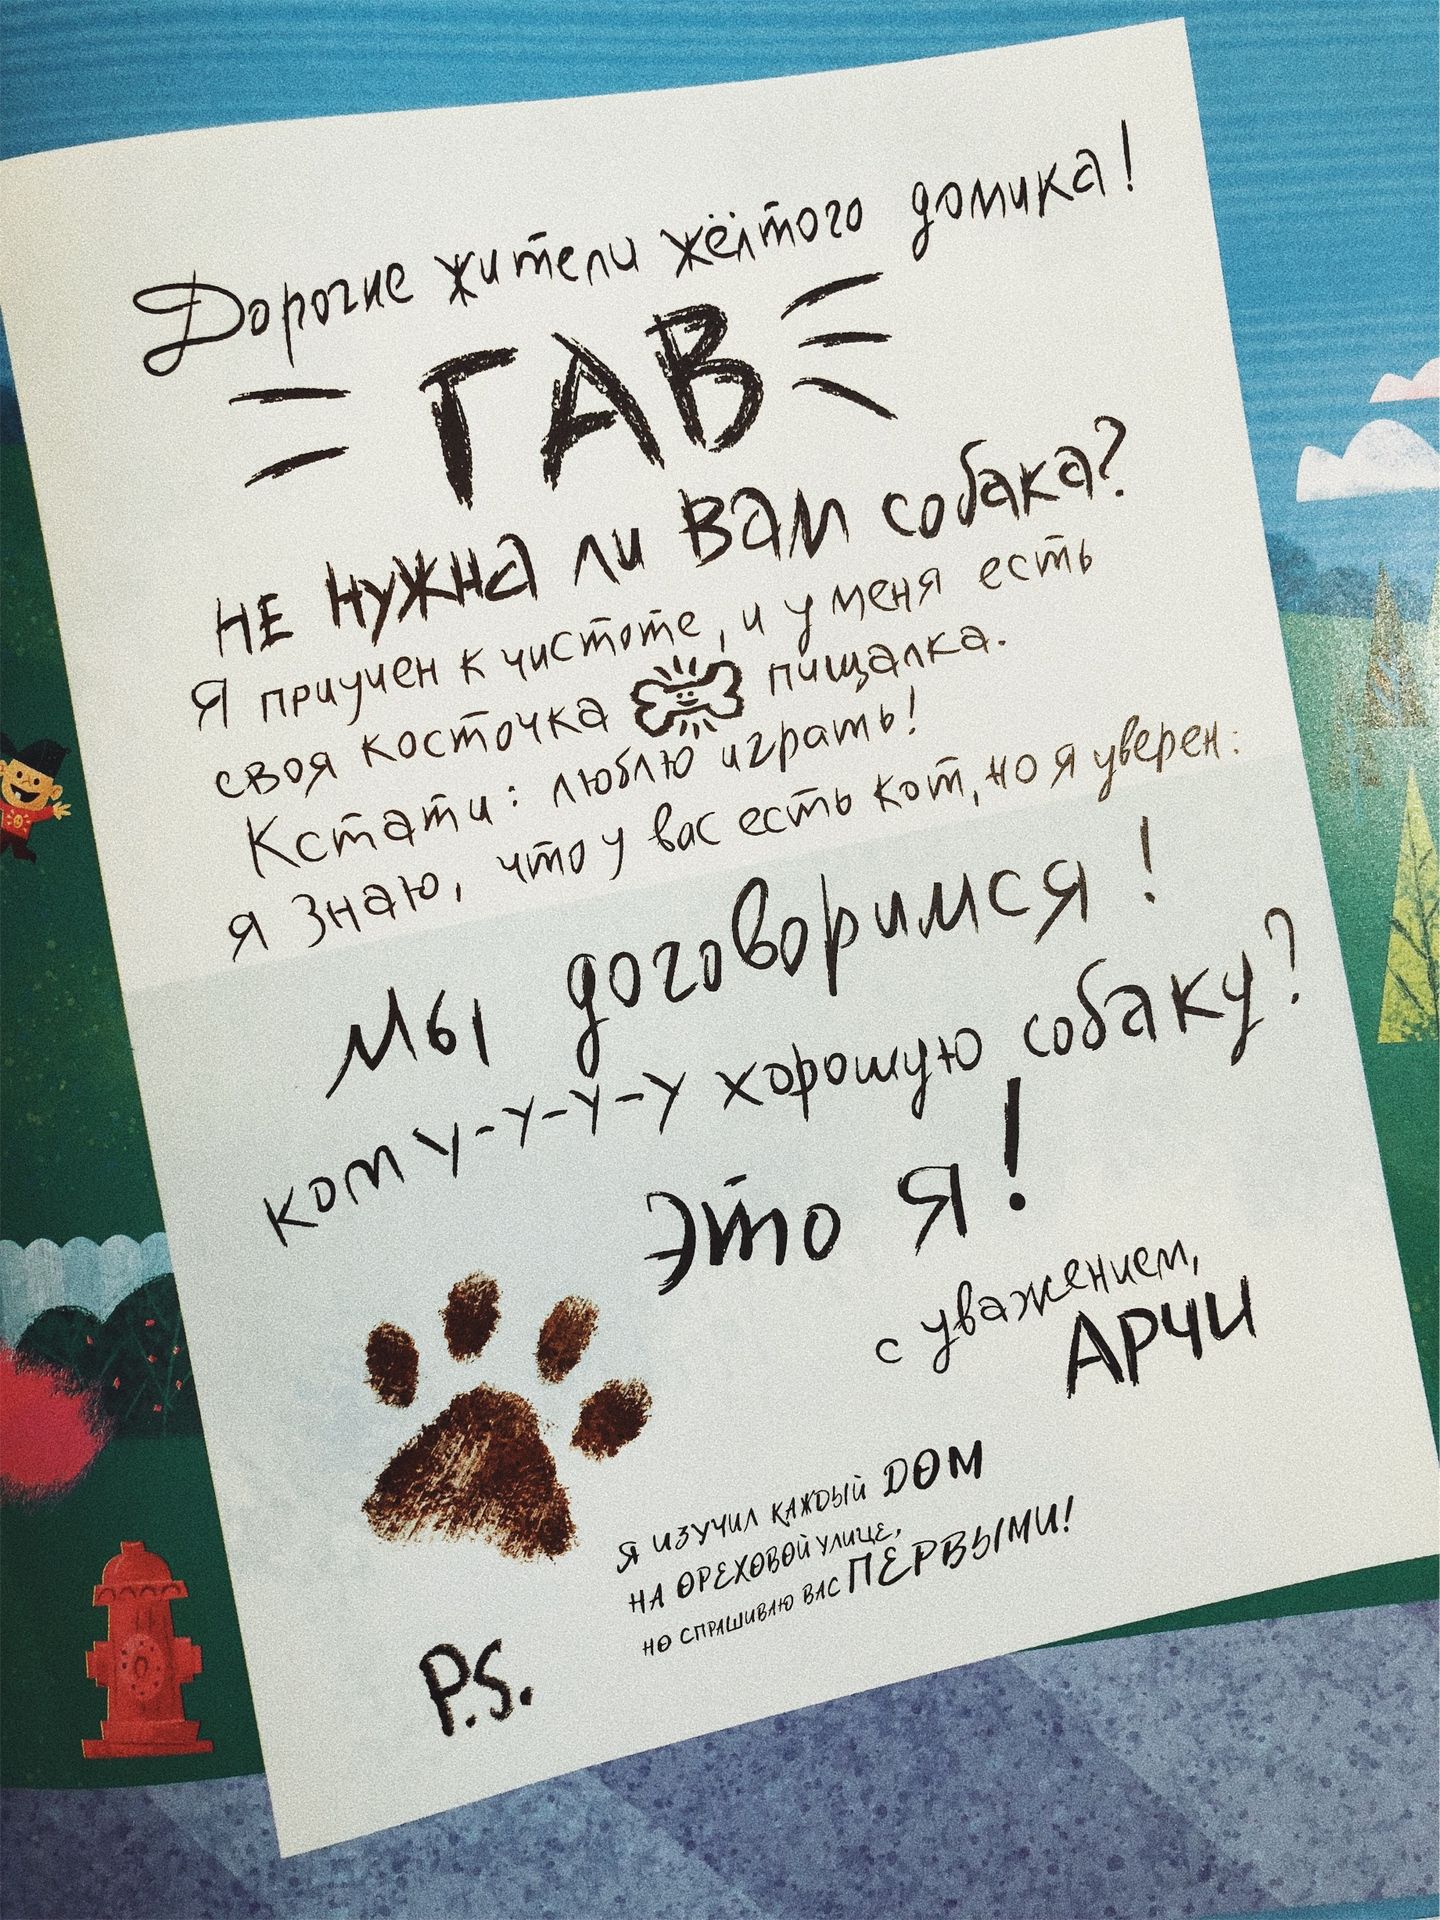 Дорогие жители жёлтого домика!
ГАВ
НЕ НУЖНА ли Вам собака?
Я приучен к чистоте, и у меня есть
своя косточка пищалка.
Кстати: люблю играть!
я знаю, что у вас есть кот, но я уверен:
Мы договоримся!
кому-у-у-у хорошую собаку?
Это Я!
с уважением,
АРЧИ
Я ИЗУЧИЛ КАЖДЫЙ ДОМ
НА ОРЕХОВОЙ УЛИЦЕ,
НО СПРАШИВАЮ ВАС ПЕРВЫМИ!
P.S.